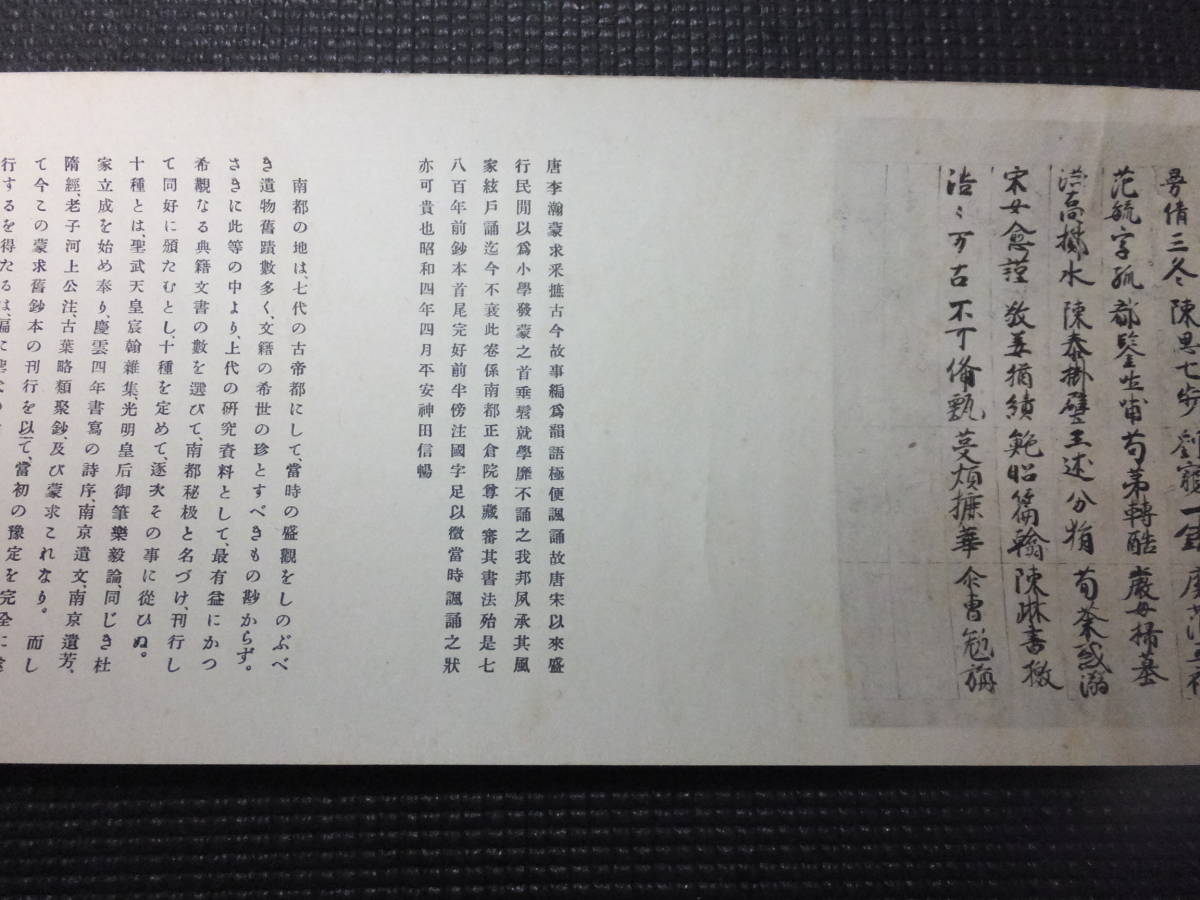 曼倩三冬 陳思七步 劉寵一錢 廉范五袴
范毓字孤 郗鑒吐哺 荀弟轉酷 嚴母掃墓
洪喬擲水 陳泰掛壁 王述分狷 荀粲惑溺
宋女愈謹 敬姜猶績 鮑昭篇翰 陳琳書檄
浩〻万古 不可俻甄 芟煩摭華 尒曹勉旃
唐李瀚蒙求采摭古今故事編爲韻語極便諷誦故唐宋以來盛
行民閒以爲小學發蒙之首垂髫就學靡不誦之我邦夙承其風
家絃戶誦迄今不衰此卷係南都正倉院尊藏審其書法殆是七
八百年前鈔本首尾完好前半傍注國字足以徵當時諷誦之狀
亦可貴也昭和四年四月平安神田信暢
南都の地は、七代の古帝都にして、當時の盛觀をしのぶべ
き遺物舊蹟數多く、文籍の希世の珍とすべきもの尠からず。
さきに此等の中より、上代の硏究資料として、最有益にかつ
希觀なる典籍文書の數を選びて、南都秘极と名づけ、刊行し
て同好に頒たむとし、十種を定めて、逐次その事に從ひぬ。
十種とは、聖武天皇宸翰雜集、光明皇后御筆樂毅論、同じき杜
家立成を始め奉り、慶雲四年書寫の詩序、南京遺文、南京遺芳、
隋經、老子河上公注、古葉略類聚鈔、及び蒙求これなり。而し
て今この蒙求舊鈔本の刊行を以て、當初の豫定を完全に
行するを得たるは、偏に聖代の